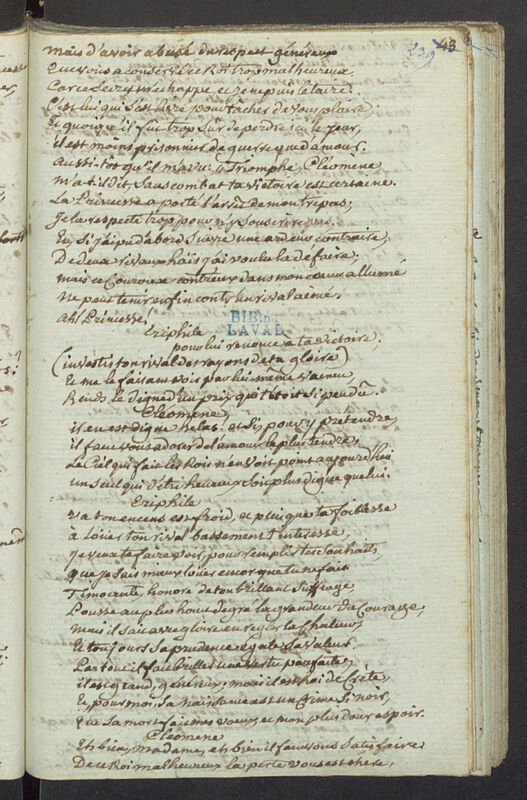 43
239
mais d'avoir abusé du respect généreux
Que vous a conservé ce Roi trop malheureux.
Car ce secret m'échappe, et je ne puis le taire.
C'est lui qui s'est livré pour tâcher de vous plaire;
Et quoiqu'il fut trop sûr de perdre ici le jour,
il est moins prisonnier de guerre que d'amour.
aussi-tot qu'il m'a vu: Triomphe, Cléomène
m'a t-il dit, sans combat ta victoire est certaine.
La Princesse a porté l'arrêt de mon trépas;
Je la respecte trop pour n'y souscrire pas.
Et, si j'ai pu d'abord suivre une ardeur contraire,
De deux rivaux haïs j'ai voulu la défaire;
mais ce Couroux contr'eux dans mon coeur allumé
Ne peut tenir enfin contr'un rival aimé.
Ah! Princesse!
BIB. DE
LAVAL
Eriphile
pour lui renonce à ta victoire.
(investis ton rival des rayons de ta gloire)
Et me le faisant voir par lui-même vaincu,
Rends-le digne d'un prix qui t'étoit si peu dû.
Cléomène
il en est digne helas! et si pour y prétendre,
il faut vous adorer d'amour le plus tendre,
Le Ciel qui fait les Rois n'en voit point aujourd'hui
un seul qui d'être heureux soit plus digne que lui.
Eriphile
Va ton encens est froid, et puisque ta foiblesse
à louer ton rival bassement s'interesse,
Je vais te faire voir, pour remplir tes souhaits,
que je sais mieux louer encor que tu ne fais
Timocrate, honoré de ton brillant suffrage,
Pousse au plus haut degré la grandeur du Courage,
mais il sait avec gloire en regler la chaleur,
Et toujours sa prudence egale sa valeur.
Par tout il fait briller une vertu parfaite,
il est grand, généreux; mais il est roi de Crète,
Et, pour moi, sa naissance est un crime si noir,
Que sa mort fait mes voeux, et mon plus doux espoir.
Cléomène
Eh bien, madame, eh bien il faut vous satisfaire
De ce Roi malheureux la perte vous est chère,